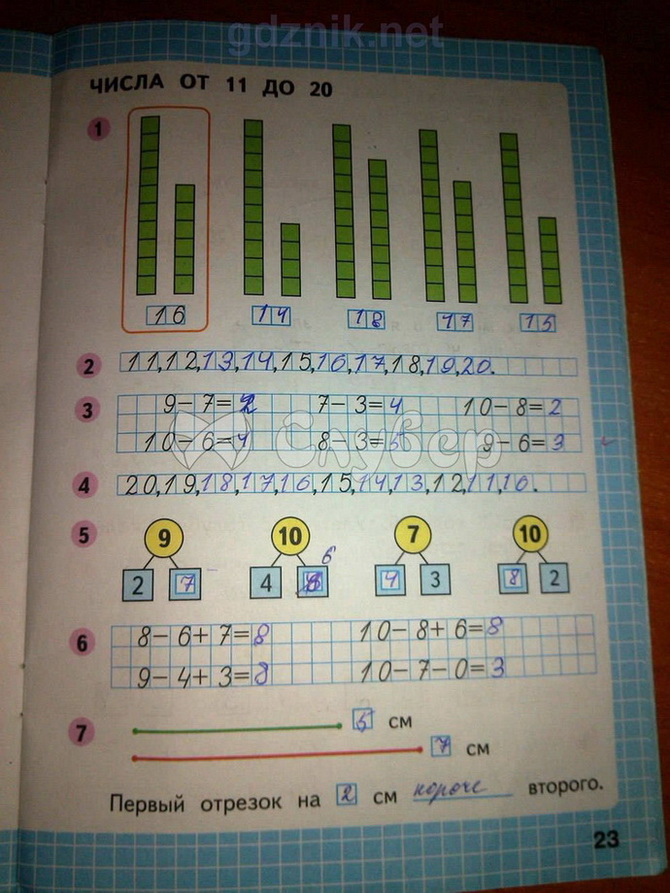 gdznik.net
ЧИСЛА ОТ 11 ДО 20
1
16 14 18 17 15
2 11,12,13,14,15,16,17,18,19,20.
3 9-7=2 7-3=4 10-8=2
10-6=4 8-3=5 9-6=3
Слувер
4 20,19,18,17,16,15,14,13,12,11,10.
5 9 10 7 10
6
2 7 4 4 3 8 2
6 8-6+7=8 10-8+6=8
9-4+3=8 10-7-0=3
7 5 см
7 см
Первый отрезок на 2 см короче второго.
23